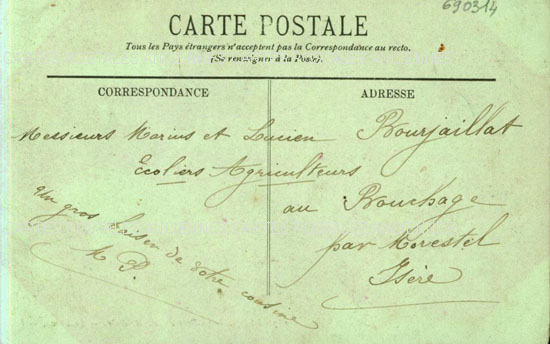 690314
CARTE POSTALE
Tous les Pays étrangers n'acceptent pas la Correspondance au recto.
(Se renseigner à la Poste).
CORRESPONDANCE
ADRESSE
Messieurs Marius et Lucien Bourjaillat
Ecoliers Agriculteurs
au Bouchage
par Morestel
Isère
Un gros baiser de votre cousine
M P.